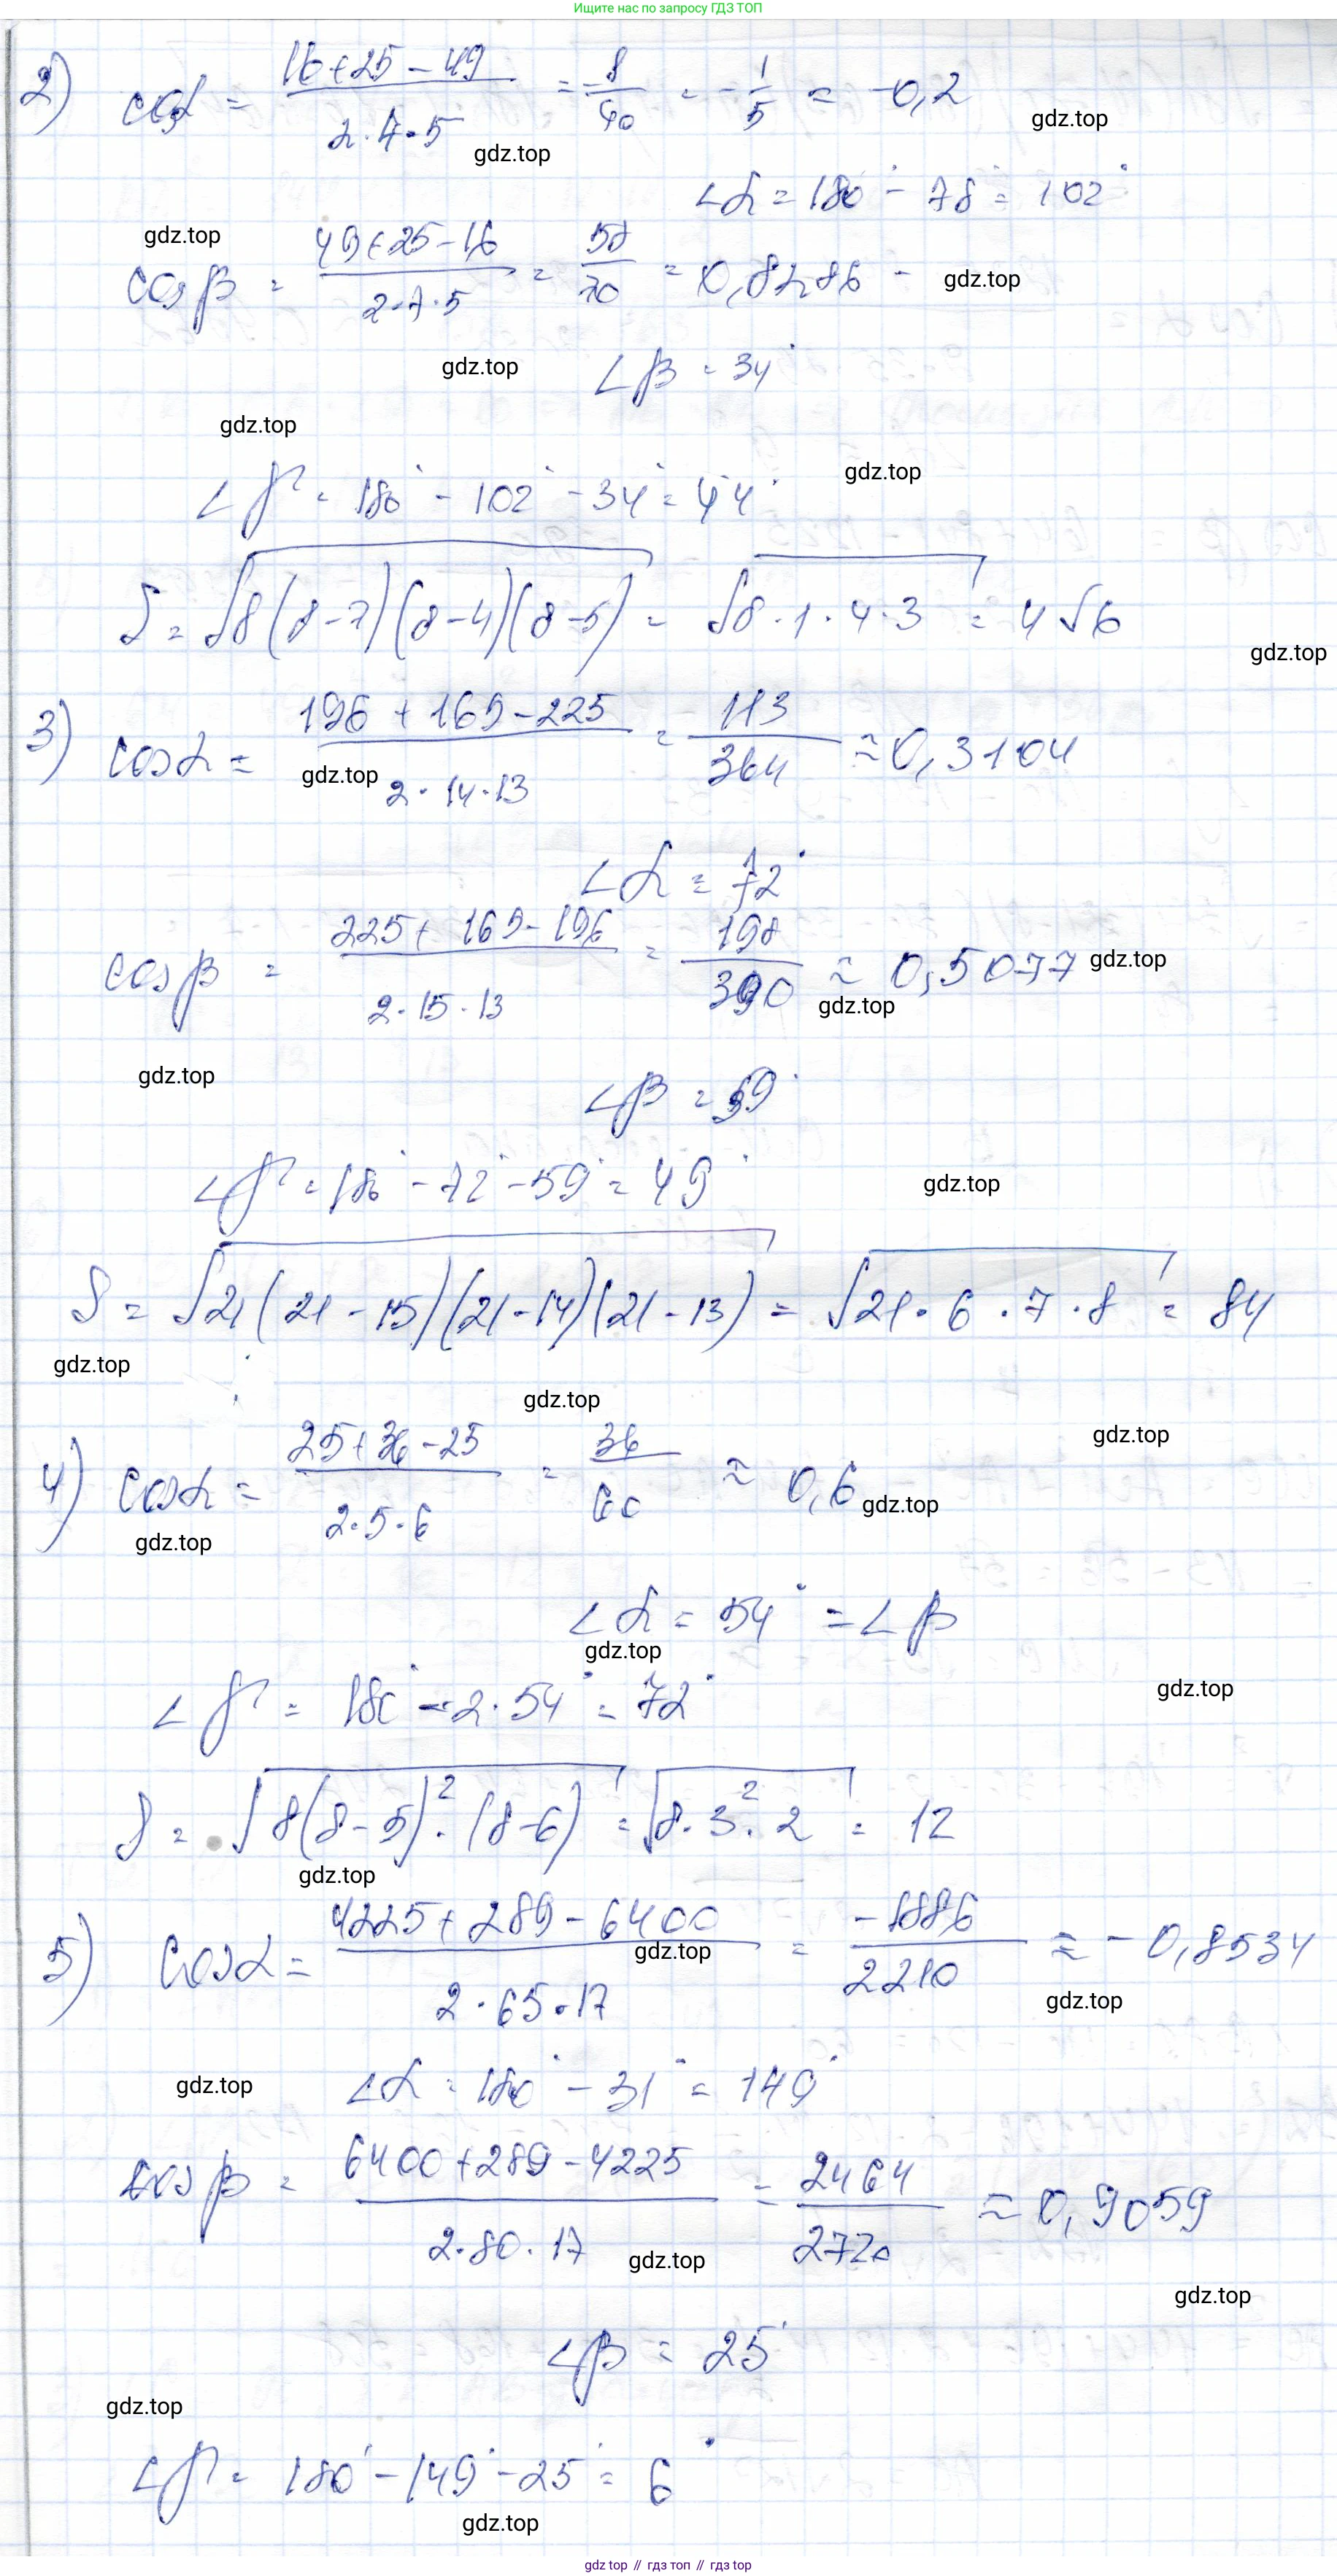 Ищите нас по запросу ГДЗ ТОП
2) cos α = (16+25−49)/(2·4·5) = −8/40 = −1/5 = −0,2
gdz.top
gdz.top
∠α = 180° − 78° = 102°
gdz.top
cos β = (49+25−16)/(2·7·5) = 58/70 = 0,8286 −
gdz.top
gdz.top
∠β = 34°
gdz.top
gdz.top
∠γ = 180° − 102° − 34° = 44°
S = √8(8−7)(8−4)(8−5) = √8·1·4·3 = 4√6
gdz.top
3) cos α = (196+169−225)/(2·14·13) = 113/364 ≈ 0,3104
gdz.top
∠α = 72°
cos β = (225+169−196)/(2·15·13) = 198/390 ≈ 0,5077
gdz.top
gdz.top
gdz.top
∠β = 59°
∠γ = 180° − 72° − 59° = 49°
gdz.top
S = √21(21−15)(21−14)(21−13) = √21·6·7·8 = 84
gdz.top
gdz.top
gdz.top
4) cos α = (25+36−25)/(2·5·6) = 36/60 ≈ 0,6
gdz.top
gdz.top
∠α = 54° = ∠β
gdz.top
∠γ = 180° − 2·54° = 72°
gdz.top
S = √8(8−5)²·(8−6) = √8·3²·2 = 12
gdz.top
5) cos α = (4225+289−6400)/(2·65·17) = −1886/2210 ≈ −0,8534
gdz.top
gdz.top
gdz.top
∠α = 180° − 31° = 149°
cos β = (6400+289−4225)/(2·80·17) = 2464/2720 ≈ 0,9059
gdz.top
gdz.top
∠β = 25°
gdz.top
∠γ = 180° − 149° − 25° = 6°
gdz.top
gdz top // гдз топ // gdz top